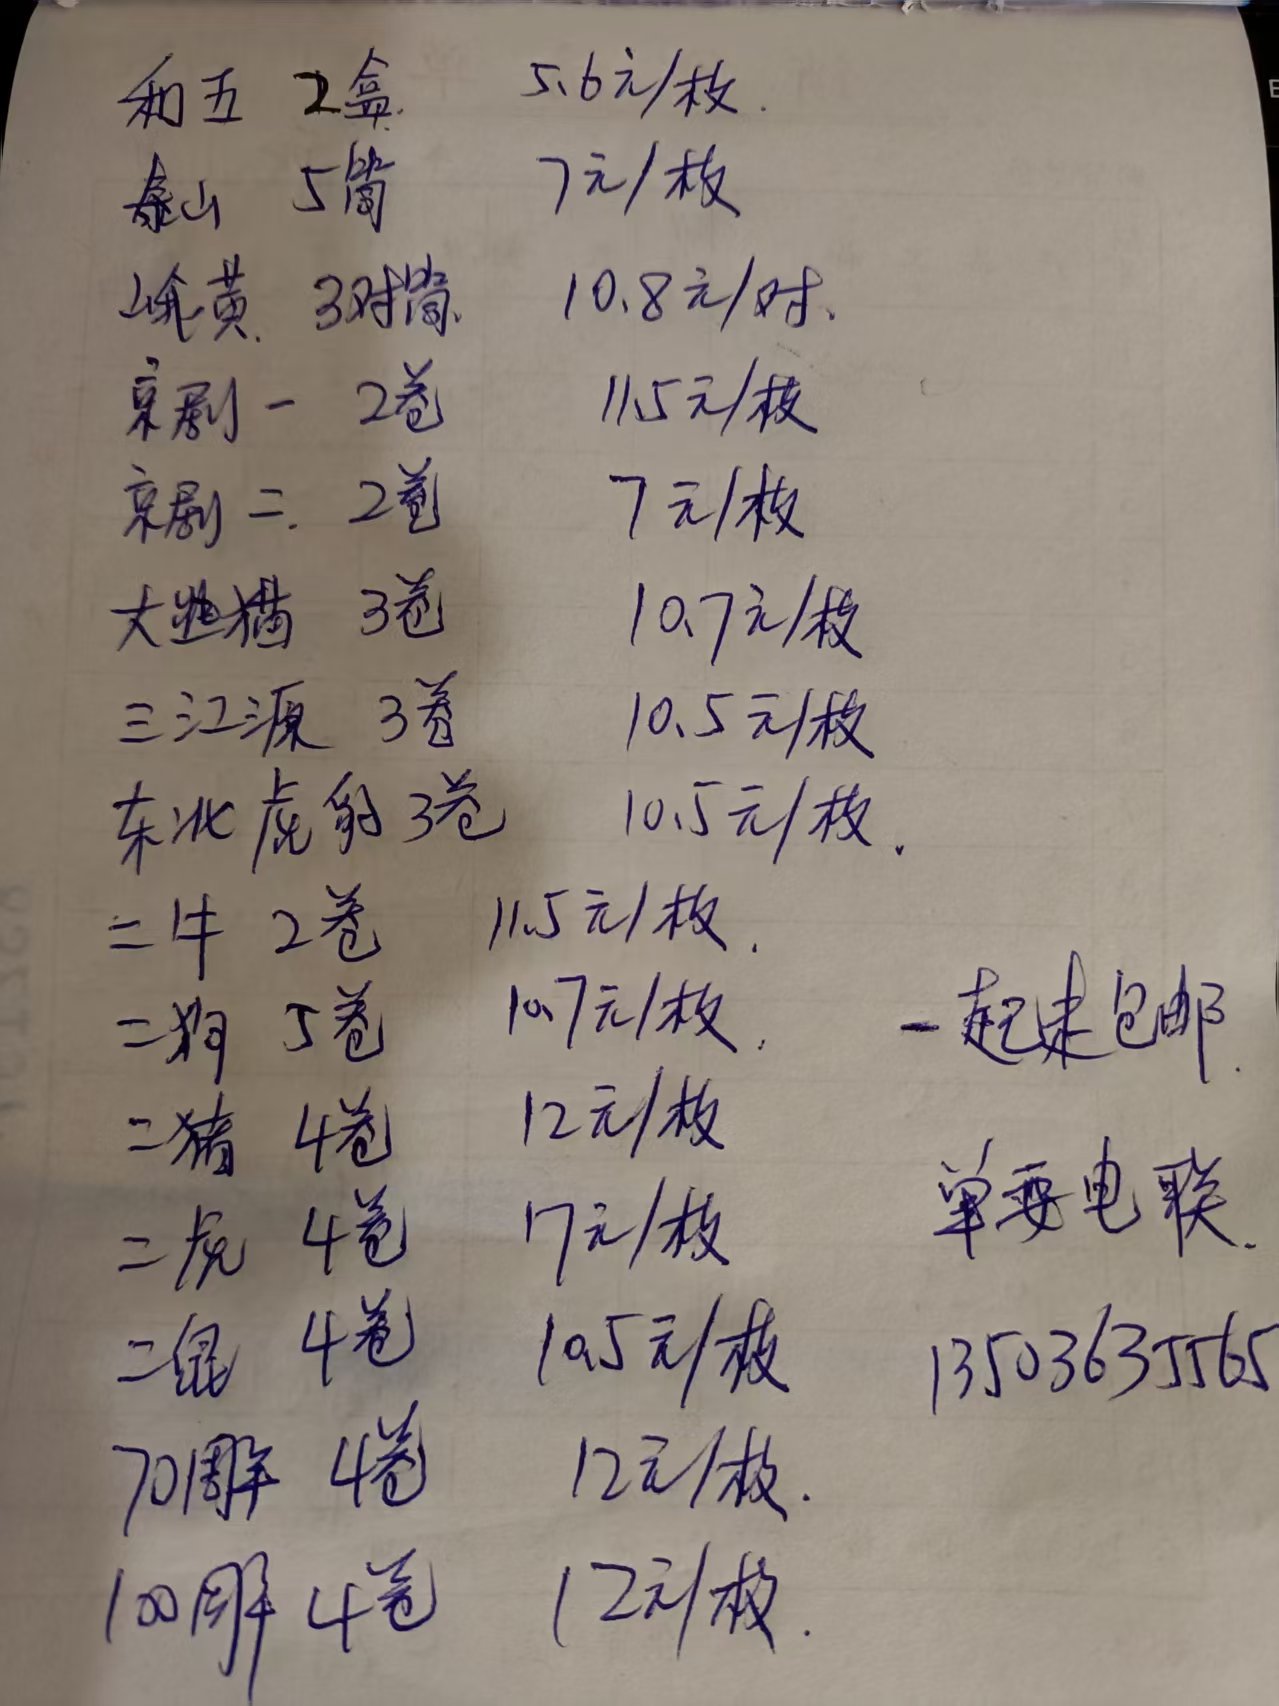 和五 2盒 5.6元/枚.
泰山 5筒 7元/枚
峨黄 3对筒 10.8元/对.
京剧一 2卷 11.5元/枚
京剧二 2卷 7元/枚
大熊猫 3卷 10.7元/枚
三江源 3卷 10.5元/枚
东北虎豹 3卷 10.5元/枚.
二牛 2卷 11.5元/枚.
二狗 5卷 10.7元/枚.
一起来包邮.
二猪 4卷 12元/枚
二虎 4卷 17元/枚
单要电联.
二鼠 4卷 10.5元/枚
13503635565
70周年 4卷 12元/枚.
100周年 4卷 12元/枚.